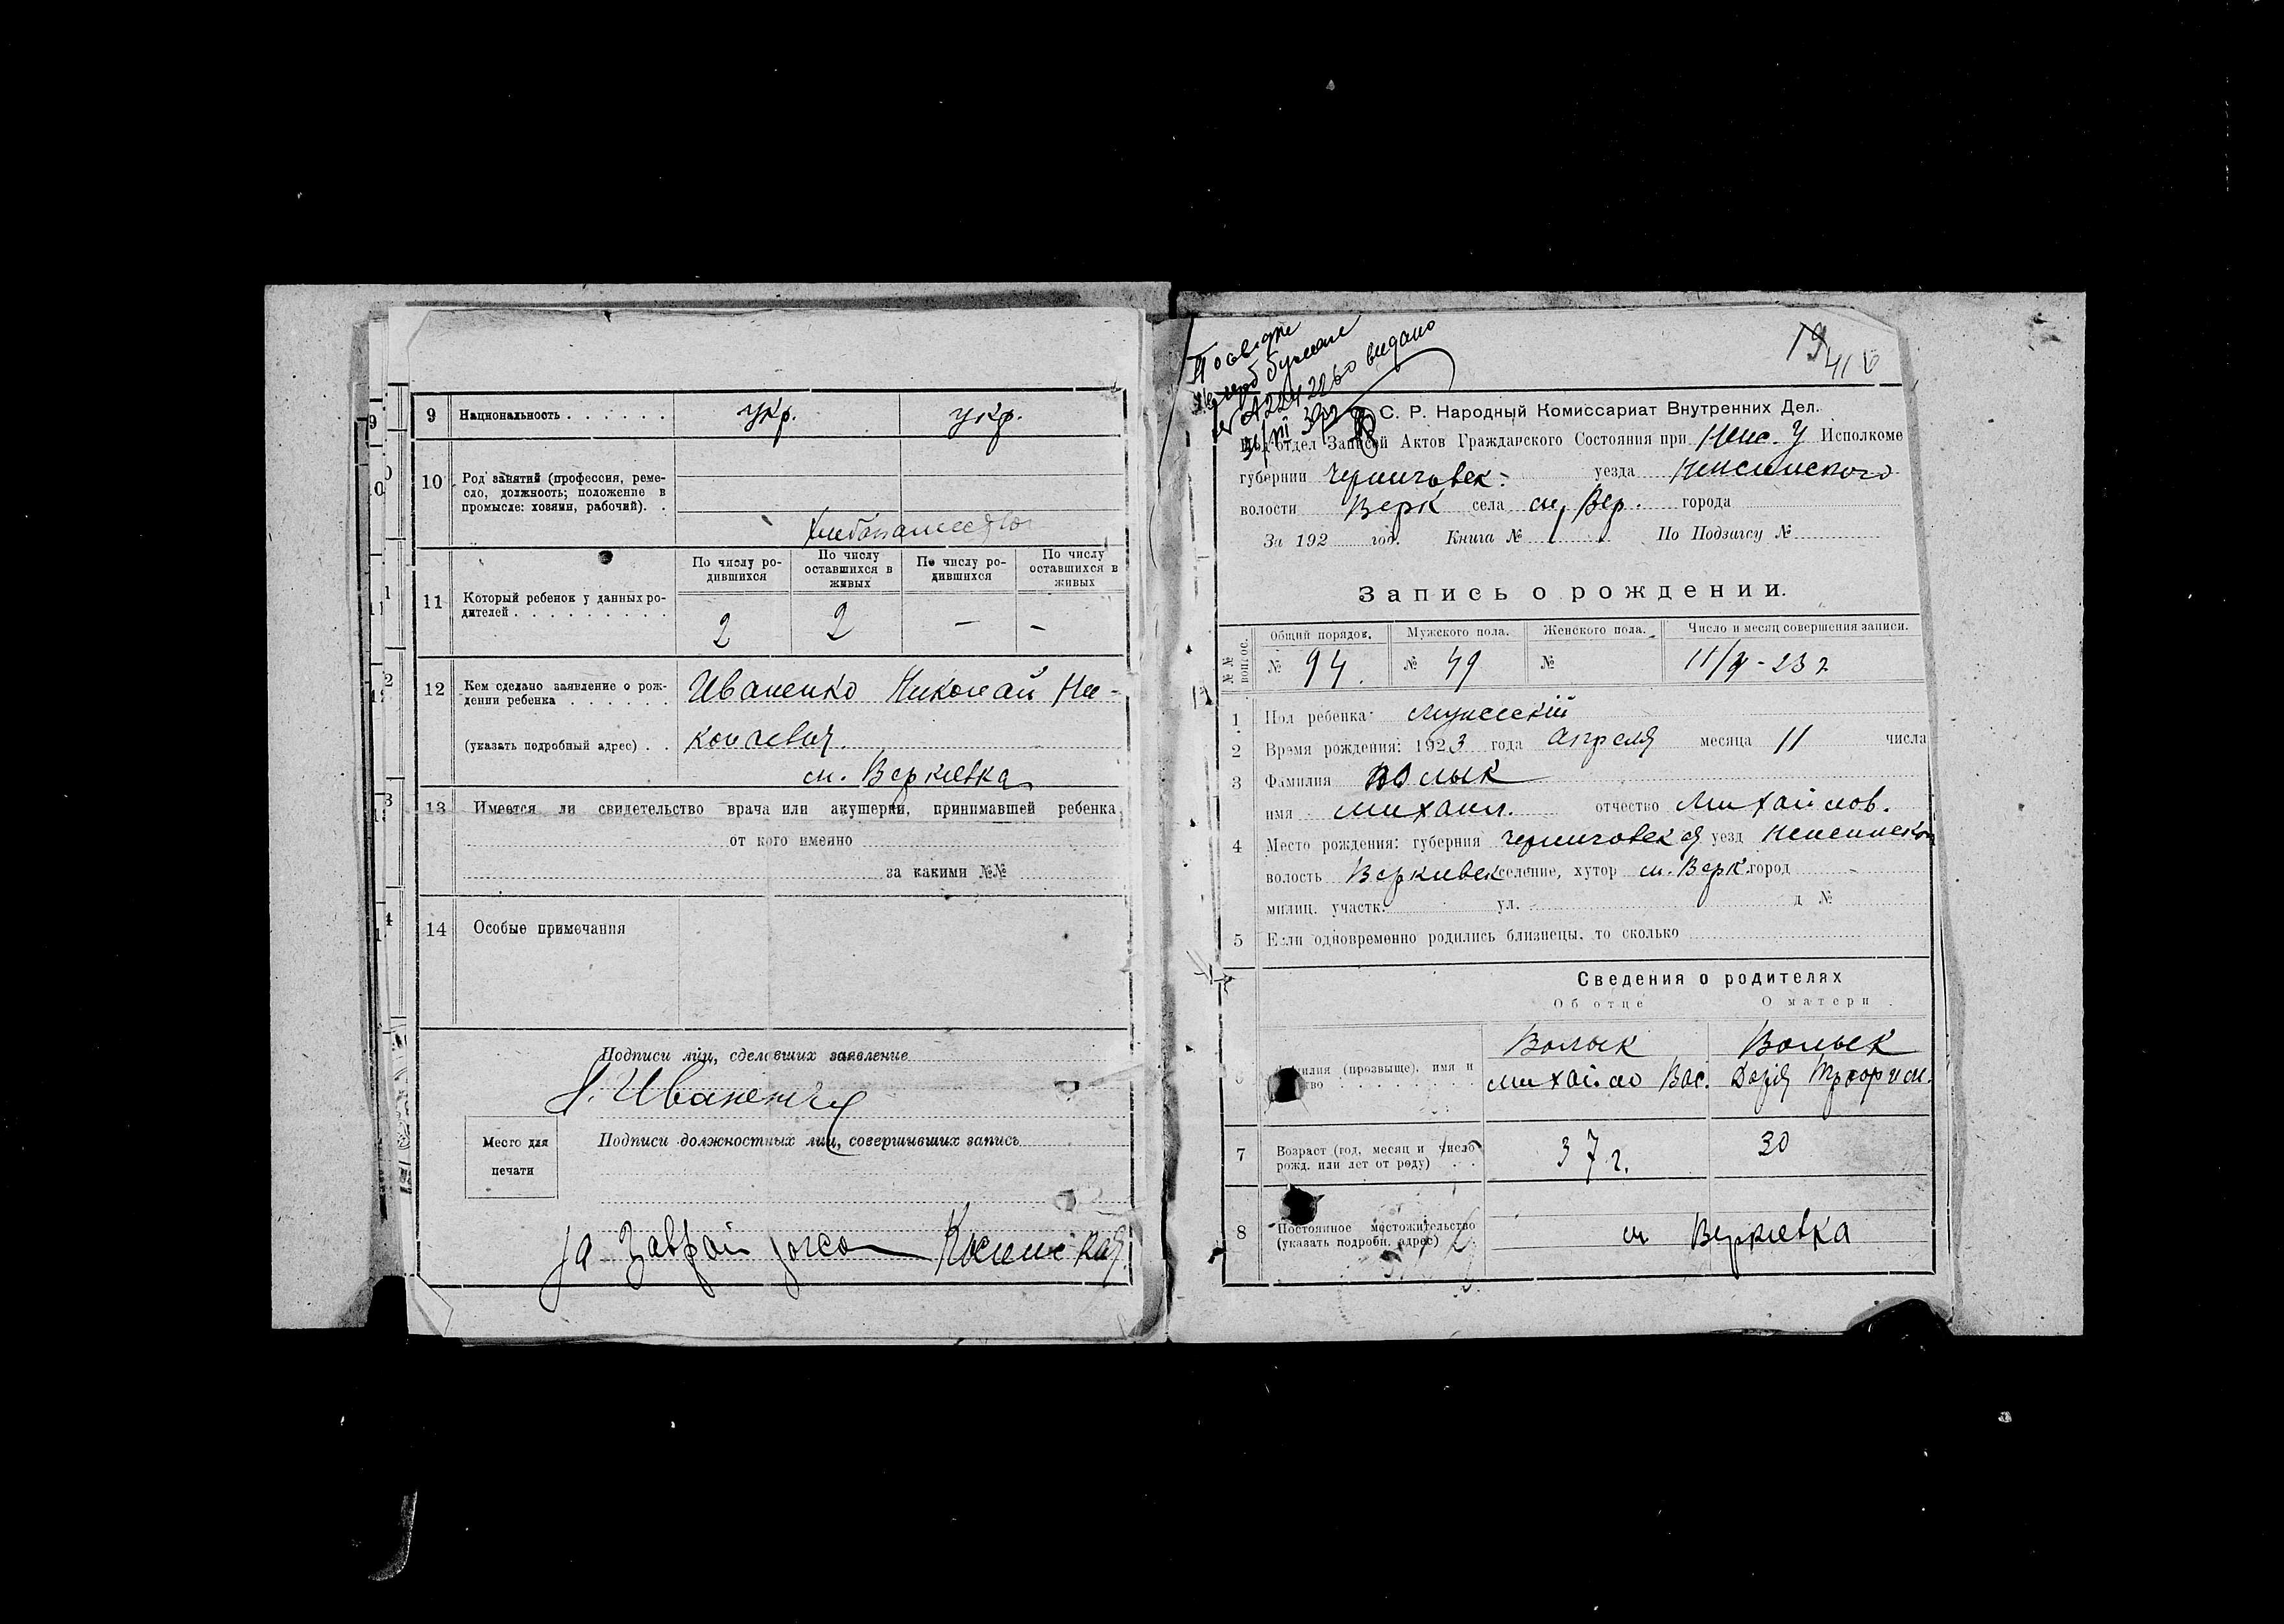 9 Национальность . . . . . . укр. укр.
10 Род занятий (профессия, реме-
сло, должность; положение в
промысле: хозяин, рабочий). .
хлебопашество
11 Который ребенок у данных ро-
дителей . . . . . . . . . .
По числу ро-
дившихся
По числу
оставшихся в
живых
По числу ро-
дившихся
По числу
оставшихся в
живых
2 2 – –
12 Кем сделано заявление о рож-
дении ребенка . . . . . .
Иваненко Николай Ни-
(указать подробный адрес) . .
колаевич
м. Веркиевка
13 Имеется ли свидетельство врача или акушерки, принимавшей ребенка
от кого именно
за какими №№
14 Особые примечания
Подписи лиц, сделавших заявление
Н. Иваненко
Место для
печати
Подписи должностных лиц, совершивших запись
19
С. Р. Народный Комиссариат Внутренних Дел.
Подотдел Записей Актов Гражданского Состояния при Неж. У Исполкоме
губернии Черниговск. уезда Нежинского
волости Верк села м. Вер. города
За 192 год. Книга № По Подзагсу №
Запись о рождении.
№№ вопрос.
Общий порядов. Мужского пола. Женского пола. Число и месяц совершения записи.
№ 94. № 49 №
1 Пол ребенка мужеский
2 Время рождения: 1923 года Апреля месяца 11 числа
3 Фамилия Волык
имя Михаил. отчество Михайлов.
4 Место рождения: губерния Черниговск ая уезд Нежинской
волость Веркиевск селение, хутор м. Верк. город
милиц. участк. ул. д №
5 Если одновременно родились близнецы, то сколько
Сведения о родителях
Об отце О матери
Волык Волык
Михайло Вас. Дарія
7 Возраст (год, месяц и число
рожд. или лет от роду) . .
37 г. 30
8 Постоянное местожительство
(указать подробн. адрес)
м Веркиевка